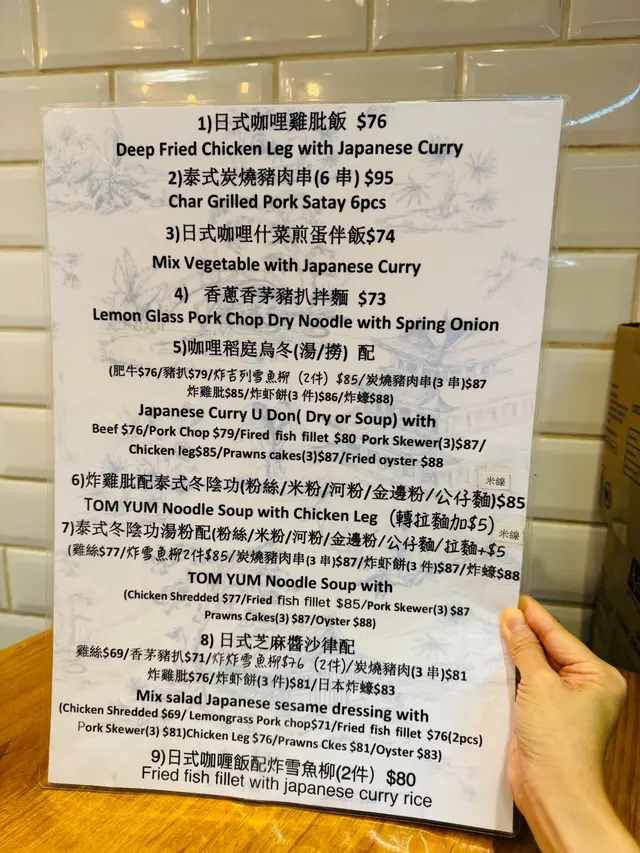 1)日式咖哩雞肶飯 $76
Deep Fried Chicken Leg with Japanese Curry
2)泰式炭燒豬肉串(6 串) $95
Char Grilled Pork Satay 6pcs
3)日式咖哩什菜煎蛋伴飯$74
Mix Vegetable with Japanese Curry
4) 香蔥香茅豬扒拌麵 $73
Lemon Glass Pork Chop Dry Noodle with Spring Onion
5)咖哩稻庭烏冬(湯/撈) 配
(肥牛$76/豬扒$79/炸吉列雪魚柳 (2件) $85/炭燒豬肉串(3 串)$87
炸雞肶$85/炸虾餅(3 件)$86/炸蠔$88)
Japanese Curry U Don( Dry or Soup) with
Beef $76/Pork Chop $79/Fired fish fillet $80 Pork Skewer(3)$87/
Chicken leg$85/Prawns cakes(3)$87/Fried oyster $88
米線
6)炸雞肶配泰式冬陰功(粉絲/米粉/河粉/金邊粉/公仔麵)$85
TOM YUM Noodle Soup with Chicken Leg (轉拉麵加$5)
米線
7)泰式冬陰功湯粉配(粉絲/米粉/河粉/金邊粉/公仔麵/拉麵+$5
(雞絲$77/炸雪魚柳2件$85/炭燒豬肉串(3 串)$87/炸虾餅(3 件)$87/炸蠔$88
TOM YUM Noodle Soup with
(Chicken Shredded $77/Fried fish fillet $85/Pork Skewer(3) $87
Prawns Cakes(3) $87/Oyster $88)
8) 日式芝麻醬沙律配
雞絲$69/香茅豬扒$71/炸炸雪魚柳$76 (2件)/炭燒豬肉(3 串)$81
炸雞肶$76/炸虾餅(3 件)$81/日本炸蠔$83
Mix salad Japanese sesame dressing with
(Chicken Shredded $69/ Lemongrass Pork chop$71/Fried fish fillet $76(2pcs)
Pork Skewer(3) $81)Chicken Leg $76/Prawns Ckes $81/Oyster $83)
9)日式咖喱飯配炸雪魚柳(2件) $80
Fried fish fillet with japanese curry rice